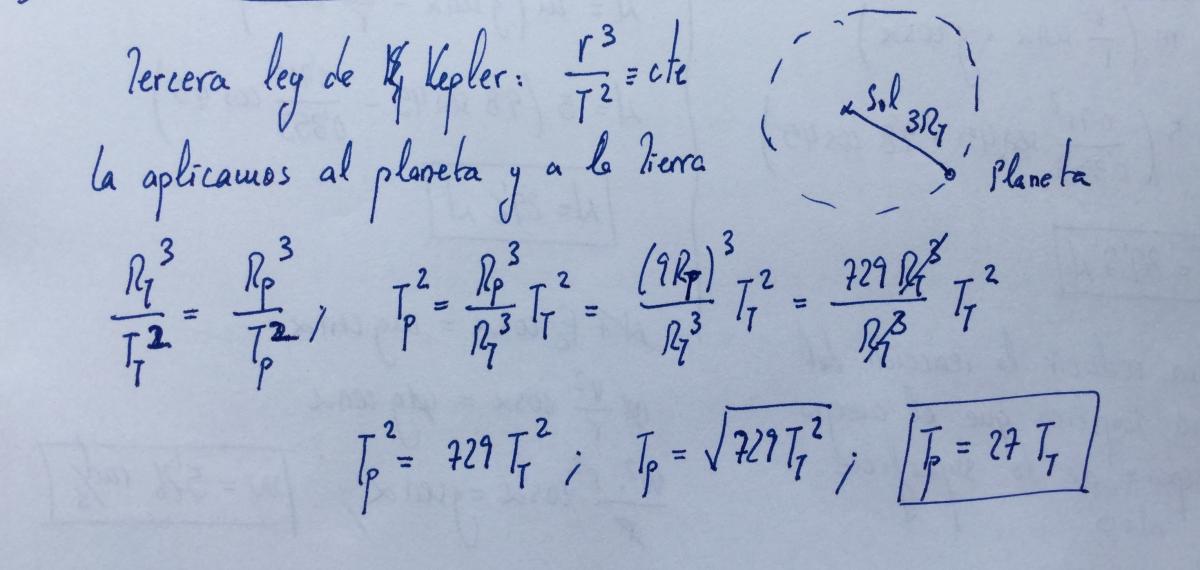 Tercera ley de Kepler: r³/T² ≡ cte
Sol
3R_T
Planeta
la aplicamos al planeta y a la Tierra
R_T³/T_T² = R_P³/T_P² ; T_P² = R_P³/R_T³ T_T² = (9R_P)³/R_T³ T_T² = 729 R_T³/R_T³ T_T²
T_P² = 729 T_T² ; T_P = √(729 T_T²) ; T_P = 27 T_T